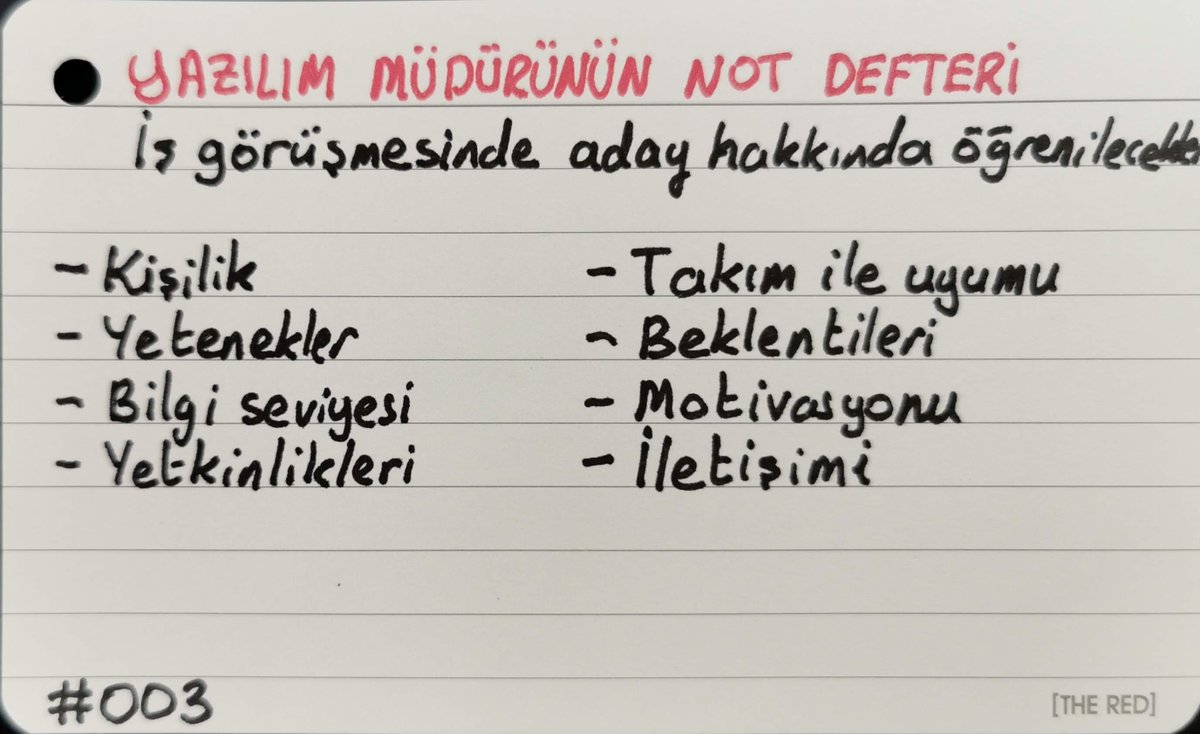 YAZILIM MÜDÜRÜNÜN NOT DEFTERİ
İş görüşmesinde aday hakkında öğrenilecekler
- Kişilik
- Yetenekler
- Bilgi seviyesi
- Yetkinlikleri
- Takım ile uyumu
- Beklentileri
- Motivasyonu
- İletişimi
#003
[THE RED]